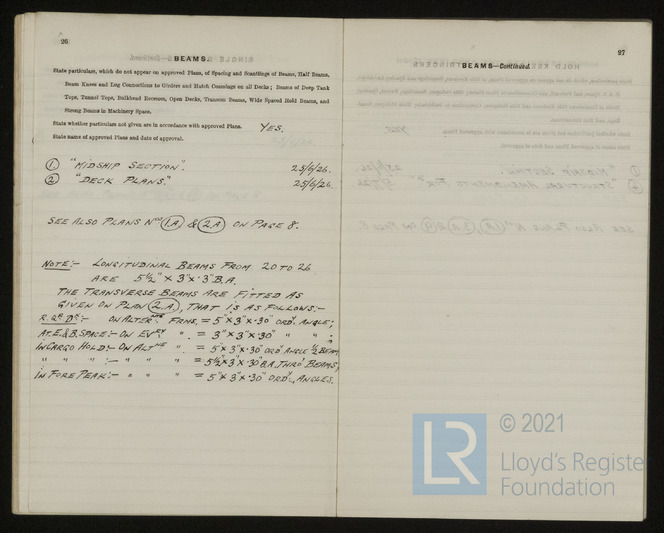 26
BEAMS.
State particulars, which do not appear on approved Plans, of Spacing and Scantlings of Beams, Half Beams,
Beam Knees and Lug Connections to Girders and Hatch Coamings on all Decks; Beams of Deep Tank
Tops, Tunnel Tops, Bulkhead Recesses, Open Decks, Transom Beams, Wide Spaced Hold Beams, and
Strong Beams in Machinery Space.
State whether particulars not given are in accordance with approved Plans. YES.
State name of approved Plans and date of approval.
① "MIDSHIP SECTION". 25/6/26.
② "DECK PLANS." 25/6/26.
SEE ALSO PLANS Nos 1.A & 2.A ON PAGE 8.
NOTE:- LONGITUDINAL BEAMS FROM 20 TO 26
ARE 5½" X 3" X .3" B.A.
THE TRANSVERSE BEAMS ARE FITTED AS
GIVEN ON PLAN 2.A, THAT IS AS FOLLOWS:-
R.QR DK:- ON ALTERNTE FRMS. = 5" X 3" X .30" ORDY ANGLE;
AT E.&B. SPACE:- ON EVRY " . = 3" X 3" X .30" " "
IN CARGO HOLD:- ON ALTNTE " . = 5" X 3" X .30" ORDY ANGLE ½ BEAM
" " " :- " " " = 5½" X 3" X .30" B.A. THRO' BEAMS;
IN FORE PEAK:- " " " = 5" X 3" X .30" ORDY. ANGLES.
27
BEAMS—Continued.
LR
© 2021
Lloyd's Register
Foundation